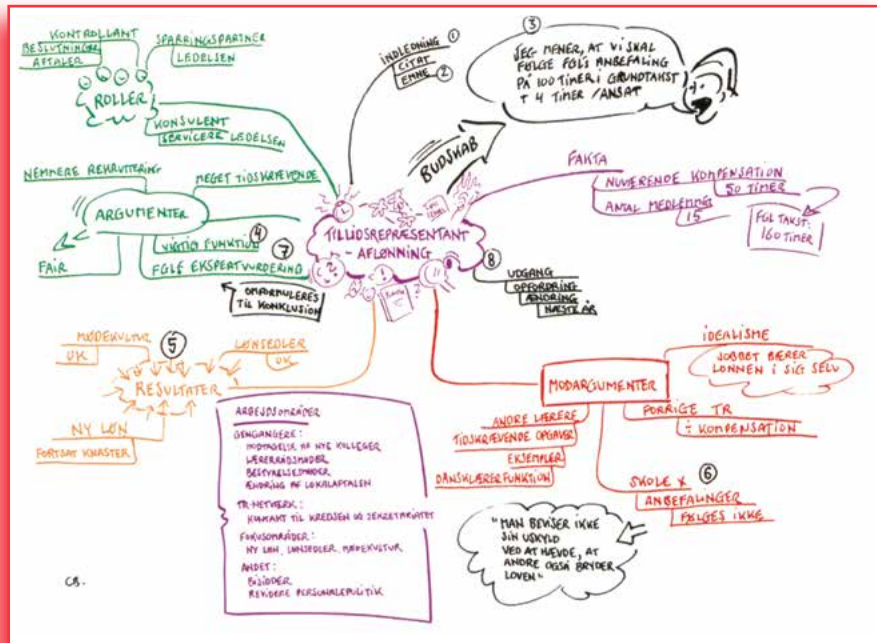 KONTROLLANT
BESLUTNINGER
AFTALER
SPARRINGSPARTNER
LEDELSEN
ROLLER
KONSULENT
SERVICERE LEDELSEN
NEMMERE REKRUTTERING
MEGET TIDSKRÆVENDE
ARGUMENTER
FAIR
VIGTIG FUNKTION
4
FØLG EKSPERTVURDERING
7
OMFORMULERES
TIL KONKLUSION
INDLEDNING 1
CITAT
EMNE 2
3
JEG MENER, AT VI SKAL
FØLGE FGL'S ANBEFALING
PÅ 100 TIMER I GRUNDTAKST
+ 4 TIMER / ANSAT
BUDSKAB
FAKTA
NUVÆRENDE KOMPENSATION
50 TIMER
ANTAL MEDLEMMER
15
FGL TAKST:
160 TIMER
TILLIDSREPRÆSENTANT
- AFLØNNING
8
UDGANG
OPFORDRING
ÆNDRING
NÆSTE ÅR
MØDEKULTUR
OK
5
LØNSEDLER
OK
RESULTATER
NY LØN
FORTSAT KNASTER
ARBEJDSOMRÅDER
GENGANGERE:
MODTAGELSE AF NYE KOLLEGER
LÆRERRÅDSMØDER
BESTYRELSESMØDER
ÆNDRING AF LOKALAFTALEN
TR-NETVÆRK:
KONTAKT TIL KREDSEN OG SEKRETARIATET
FOKUSOMRÅDER:
NY LØN, LØNSEDLER, MØDEKULTUR
ANDET:
BISIDDER
REVIDERE PERSONALEPOLITIK
MODARGUMENTER
IDEALISME
JOBBET BÆRER
LØNNEN I SIG SELV
FORRIGE TR
÷ KOMPENSATION
ANDRE LÆRERE
TIDSKRÆVENDE OPGAVER
EKSEMPLER
DANSKLÆRERFUNKTION
SKOLE X
6
ANBEFALINGER
FØLGES IKKE
"MAN BEVISER IKKE
SIN USKYLD
VED AT HÆVDE, AT
ANDRE OGSÅ BRYDER
LOVEN"
CB.